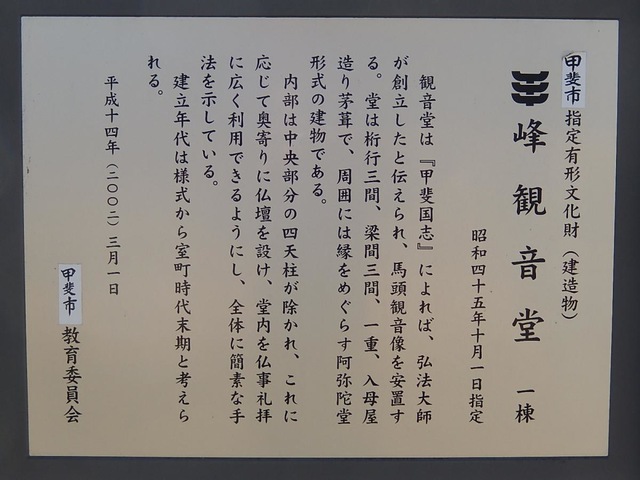 甲斐市指定有形文化財（建造物）
峰観音堂 一棟
昭和四十五年十月一日指定
観音堂は『甲斐国志』によれば、弘法大師
が創立したと伝えられ、馬頭観音像を安置す
る。堂は桁行三間、梁間三間、一重、入母屋
造り茅葺で、周囲には縁をめぐらす阿弥陀堂
形式の建物である。
内部は中央部分の四天柱が除かれ、これに
応じて奥寄りに仏壇を設け、堂内を仏事礼拝
に広く利用できるようにし、全体に簡素な手
法を示している。
建立年代は様式から室町時代末期と考えら
れる。
平成十四年（二〇〇二）三月一日
甲斐市教育委員会